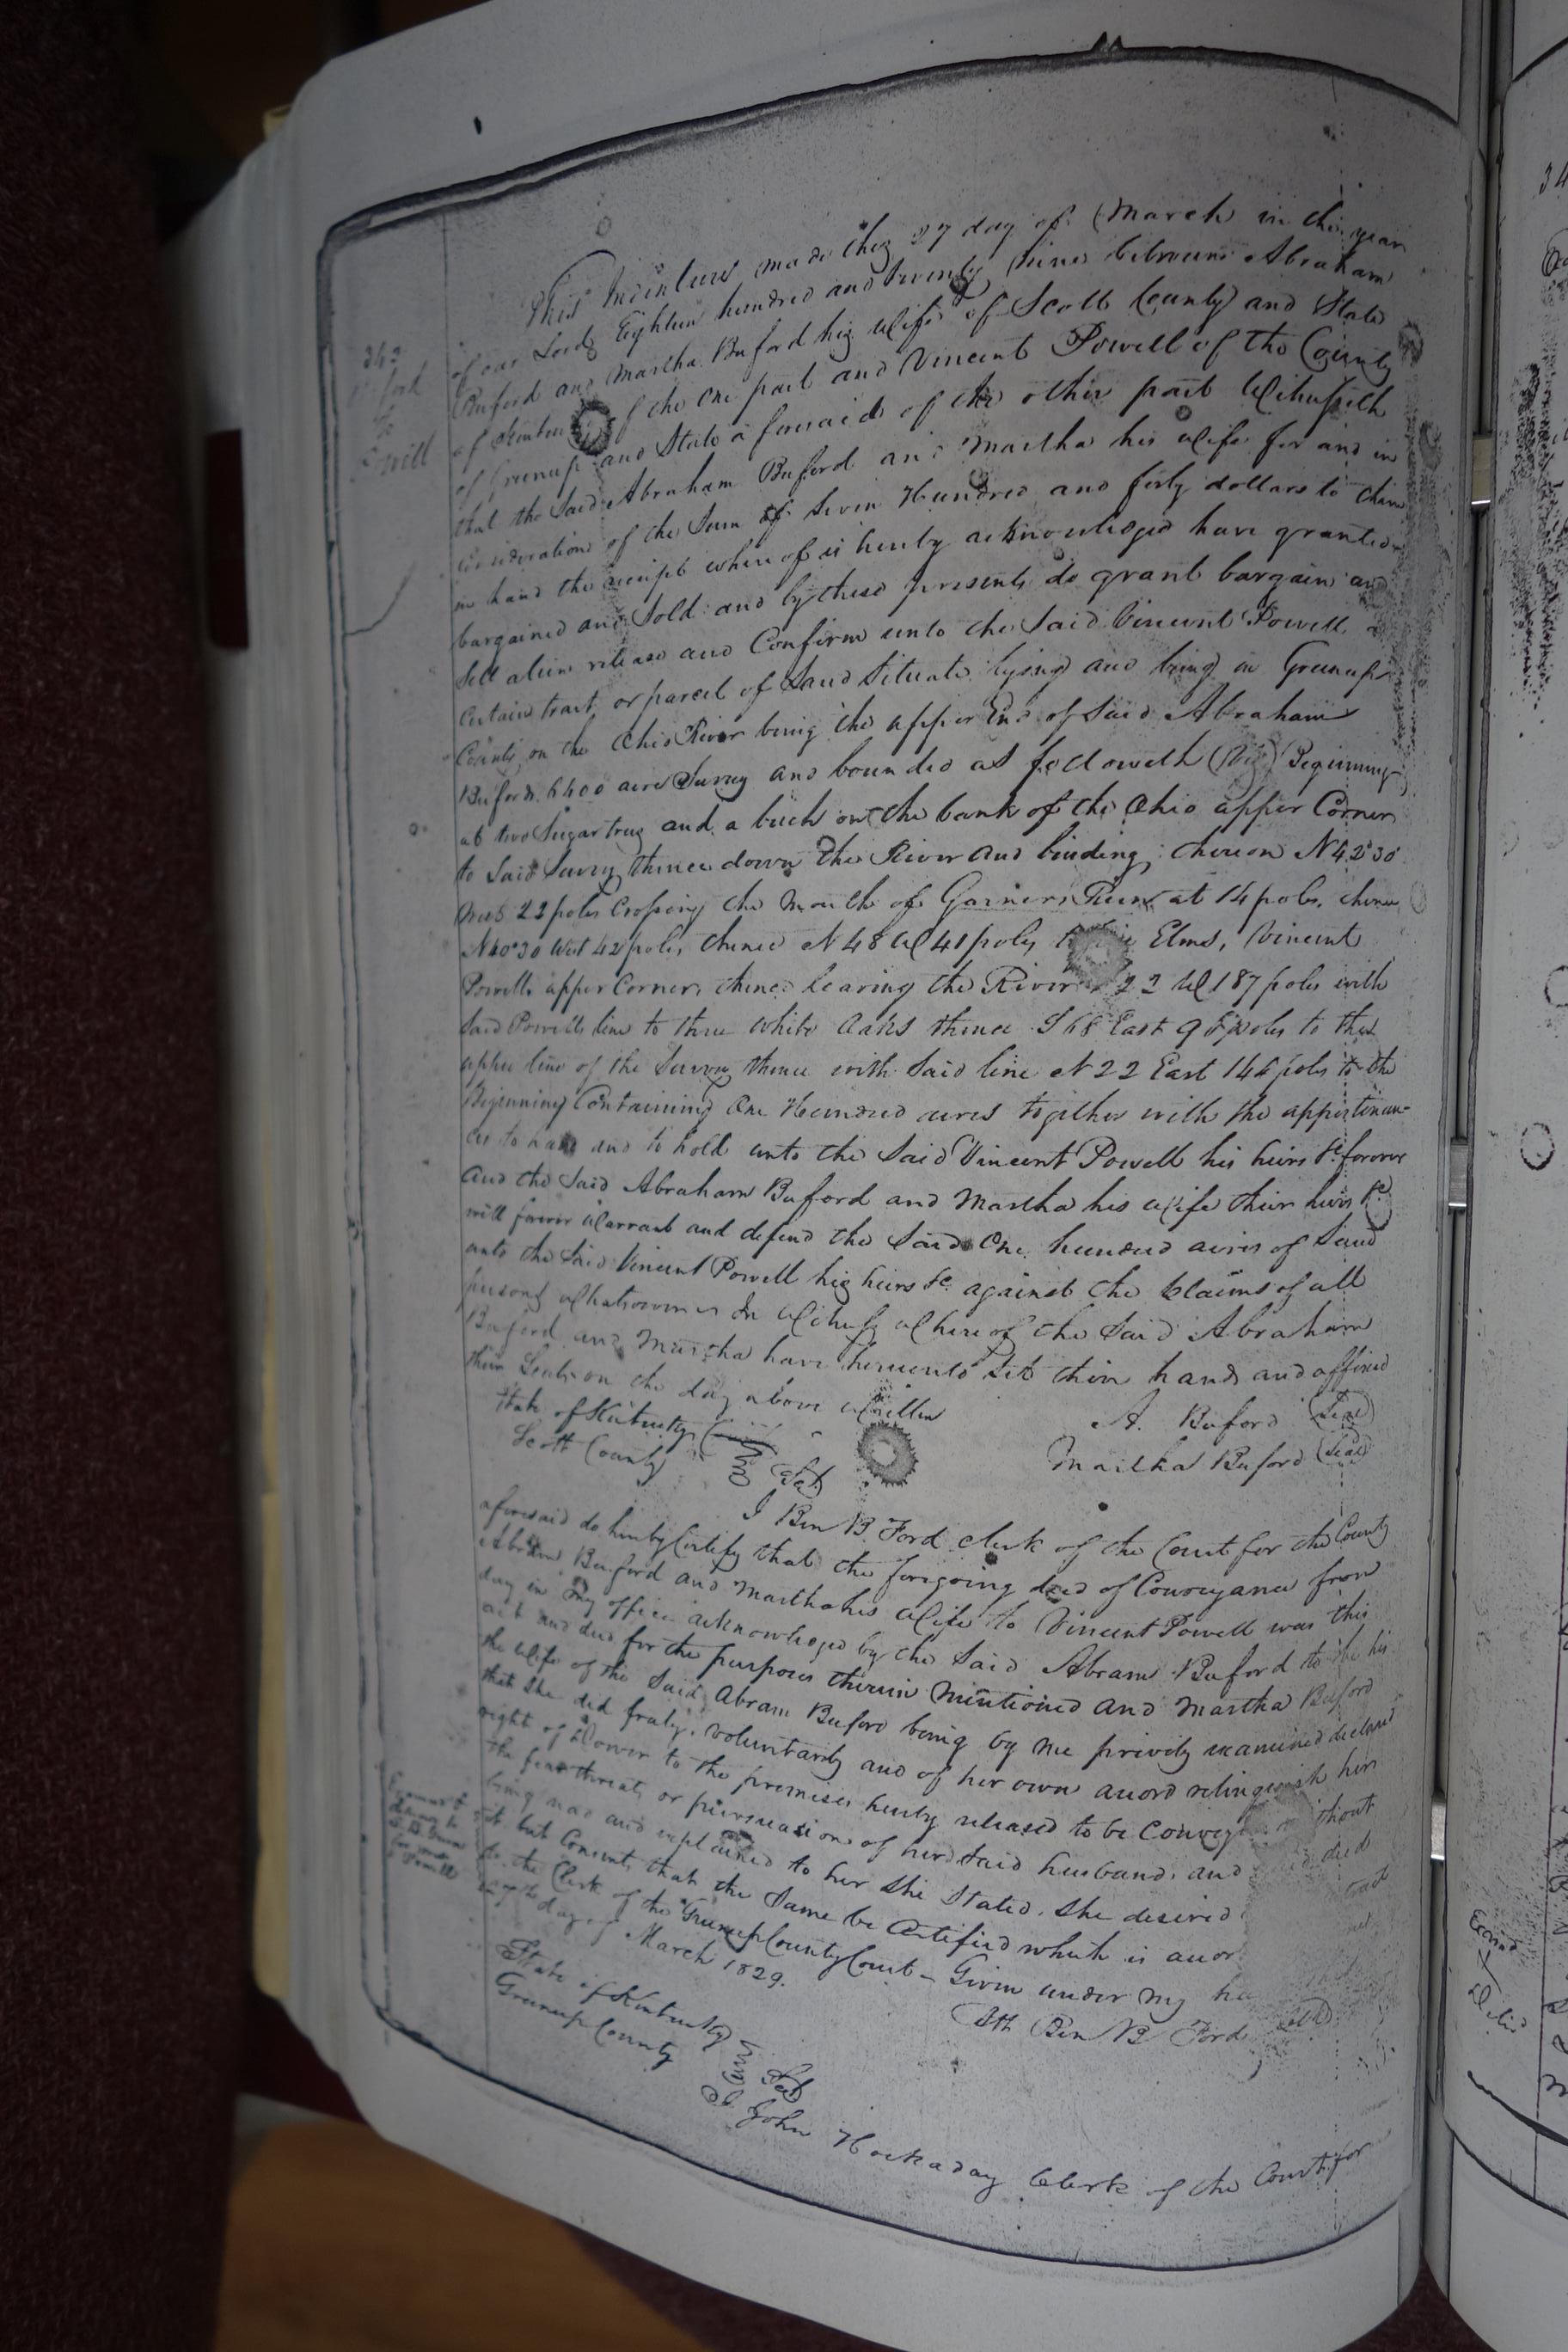 This Indenture made this 27 day of March in the year
of our Lord Eighteen hundred and twenty nine between Abraham
Buford and Martha Buford his Wife of Scott County and State
of Kentucky of the one part and Vincent Powell of the County
of Greenup and State aforesaid of the other part Witnesseth
that the Said Abraham Buford and Martha his wife for and in
Consideration of the Sum of Seven Hundred and forty dollars to them
in hand the receipt where of is hereby acknowledged have granted
bargained and Sold and by these presents do grant bargain and
Sell alien release and Confirm unto the Said Vincent Powell a
Certain tract or parcel of Land Situate lying and being in Greenup
County on the Ohio River being the upper End of Said Abraham
Bufords 6400 acre Survey and bounded as followeth (Viz) Beginning
at two Sugartrees and a buch on the bank of the Ohio upper Corner
to Said Survey thence down the River and binding thereon N42°30
West 22 poles Crossing the mouth of Run at 14 poles, thence
N40°30 West 42 poles, thence N 48 W 41 poles Elms, Vincent
Powells upper Corner, thence leaving the River 22 W 187 poles with
Said Powells line to three white oaks thence S 68 East 98 poles to the
upper line of the Survey thence with Said line N 22 East 146 poles to the
Beginning Containing One Hundred acres together with the appertenan-
ces to have and to hold unto the Said Vincent Powell his heirs &c forever
and the Said Abraham Buford and Martha his wife their heirs &c
will forever Warrant and defend the Said One hundred acres of Land
unto the Said Vincent Powell his heirs &c against the Claims of all
persons Whatsoever In Witness Where of the Said Abraham
Buford and Martha have hereunto Set their hands and affixed
their Seals on the day above Written
A. Buford (Seal)
Martha Buford (Seal)
State of Kentucky
Scott County Sct
I Ben B Ford clerk of the Court for the County
aforesaid do hereby Certify that the foregoing deed of Conveyance from
Abram Buford and Martha his Wife to Vincent Powell was this
day in my office acknowledged by the Said Abram Buford to be his
act and deed for the purposes therein mentioned and Martha Buford
the Wife of the Said Abram Buford being by me privily examined declared
that She did freely, voluntarily and of her own accord relinquish her
right of Dower to the premises hereby released to be Convey without
the fear threats or persuasions of her Said husband, and deed
being read and explained to her She Stated She desired
it but Consents that the Same be Certified which is
to the Clerk of the Greenup County Court - Given under my
day of March 1829.
Att Ben B Ford
State of Kentucky
Greenup County Sct
I John Hockaday Clerk of the Court for